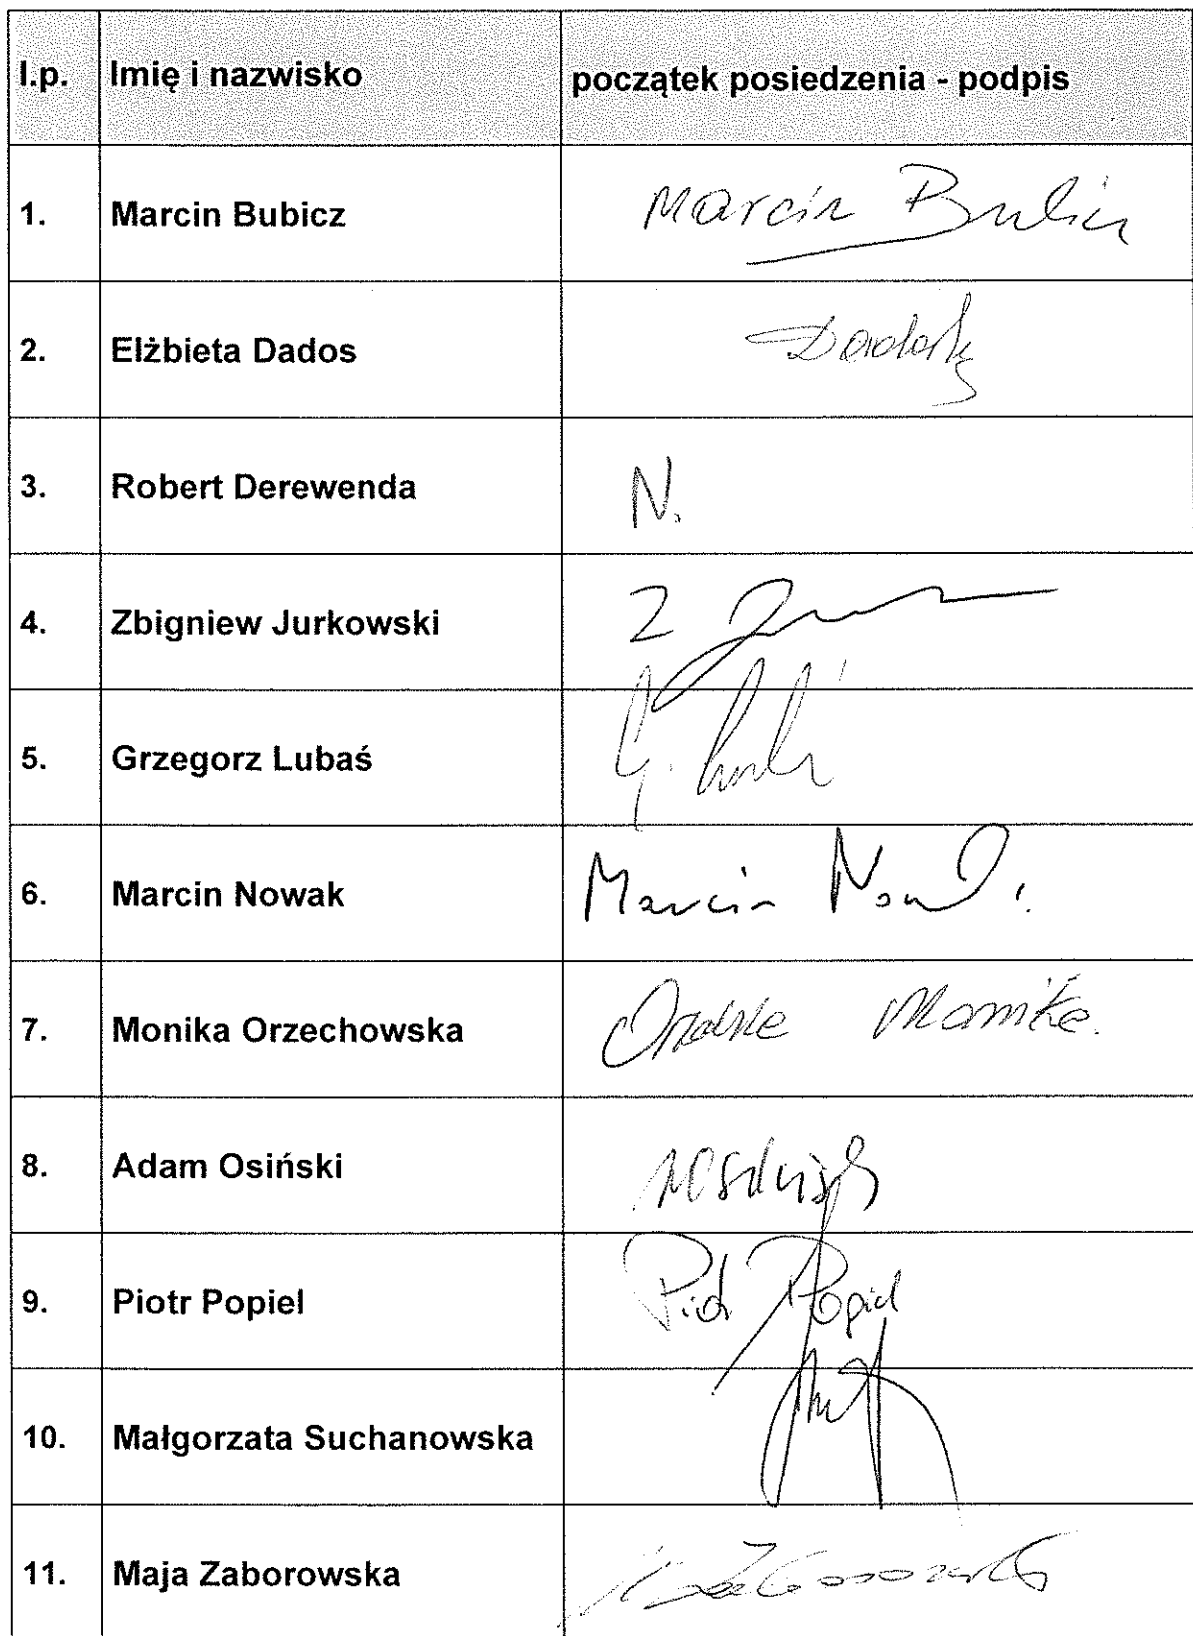 l.p. Imię i nazwisko początek posiedzenia - podpis
1. Marcin Bubicz Marcin Bubicz
2. Elżbieta Dados
3. Robert Derewenda N.
4. Zbigniew Jurkowski Z
5. Grzegorz Lubaś G.
6. Marcin Nowak Marcin Nowak
7. Monika Orzechowska Monika
8. Adam Osiński
9. Piotr Popiel Piotr Popiel
10. Małgorzata Suchanowska
11. Maja Zaborowska